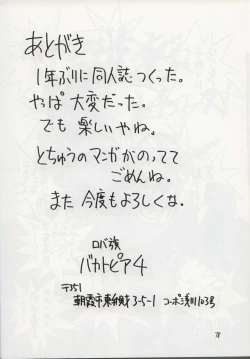 あとがき
1年ぶりに同人誌つくった。
やっぱ 大変だった。
でも 楽しいやね。
とちゅうのマンガがのってて
ごめんね。
また 今度もよろしくな。
ロバ族
バカトピア4
〒351
朝霞市東弁財3-5-1 コーポ浅川103号